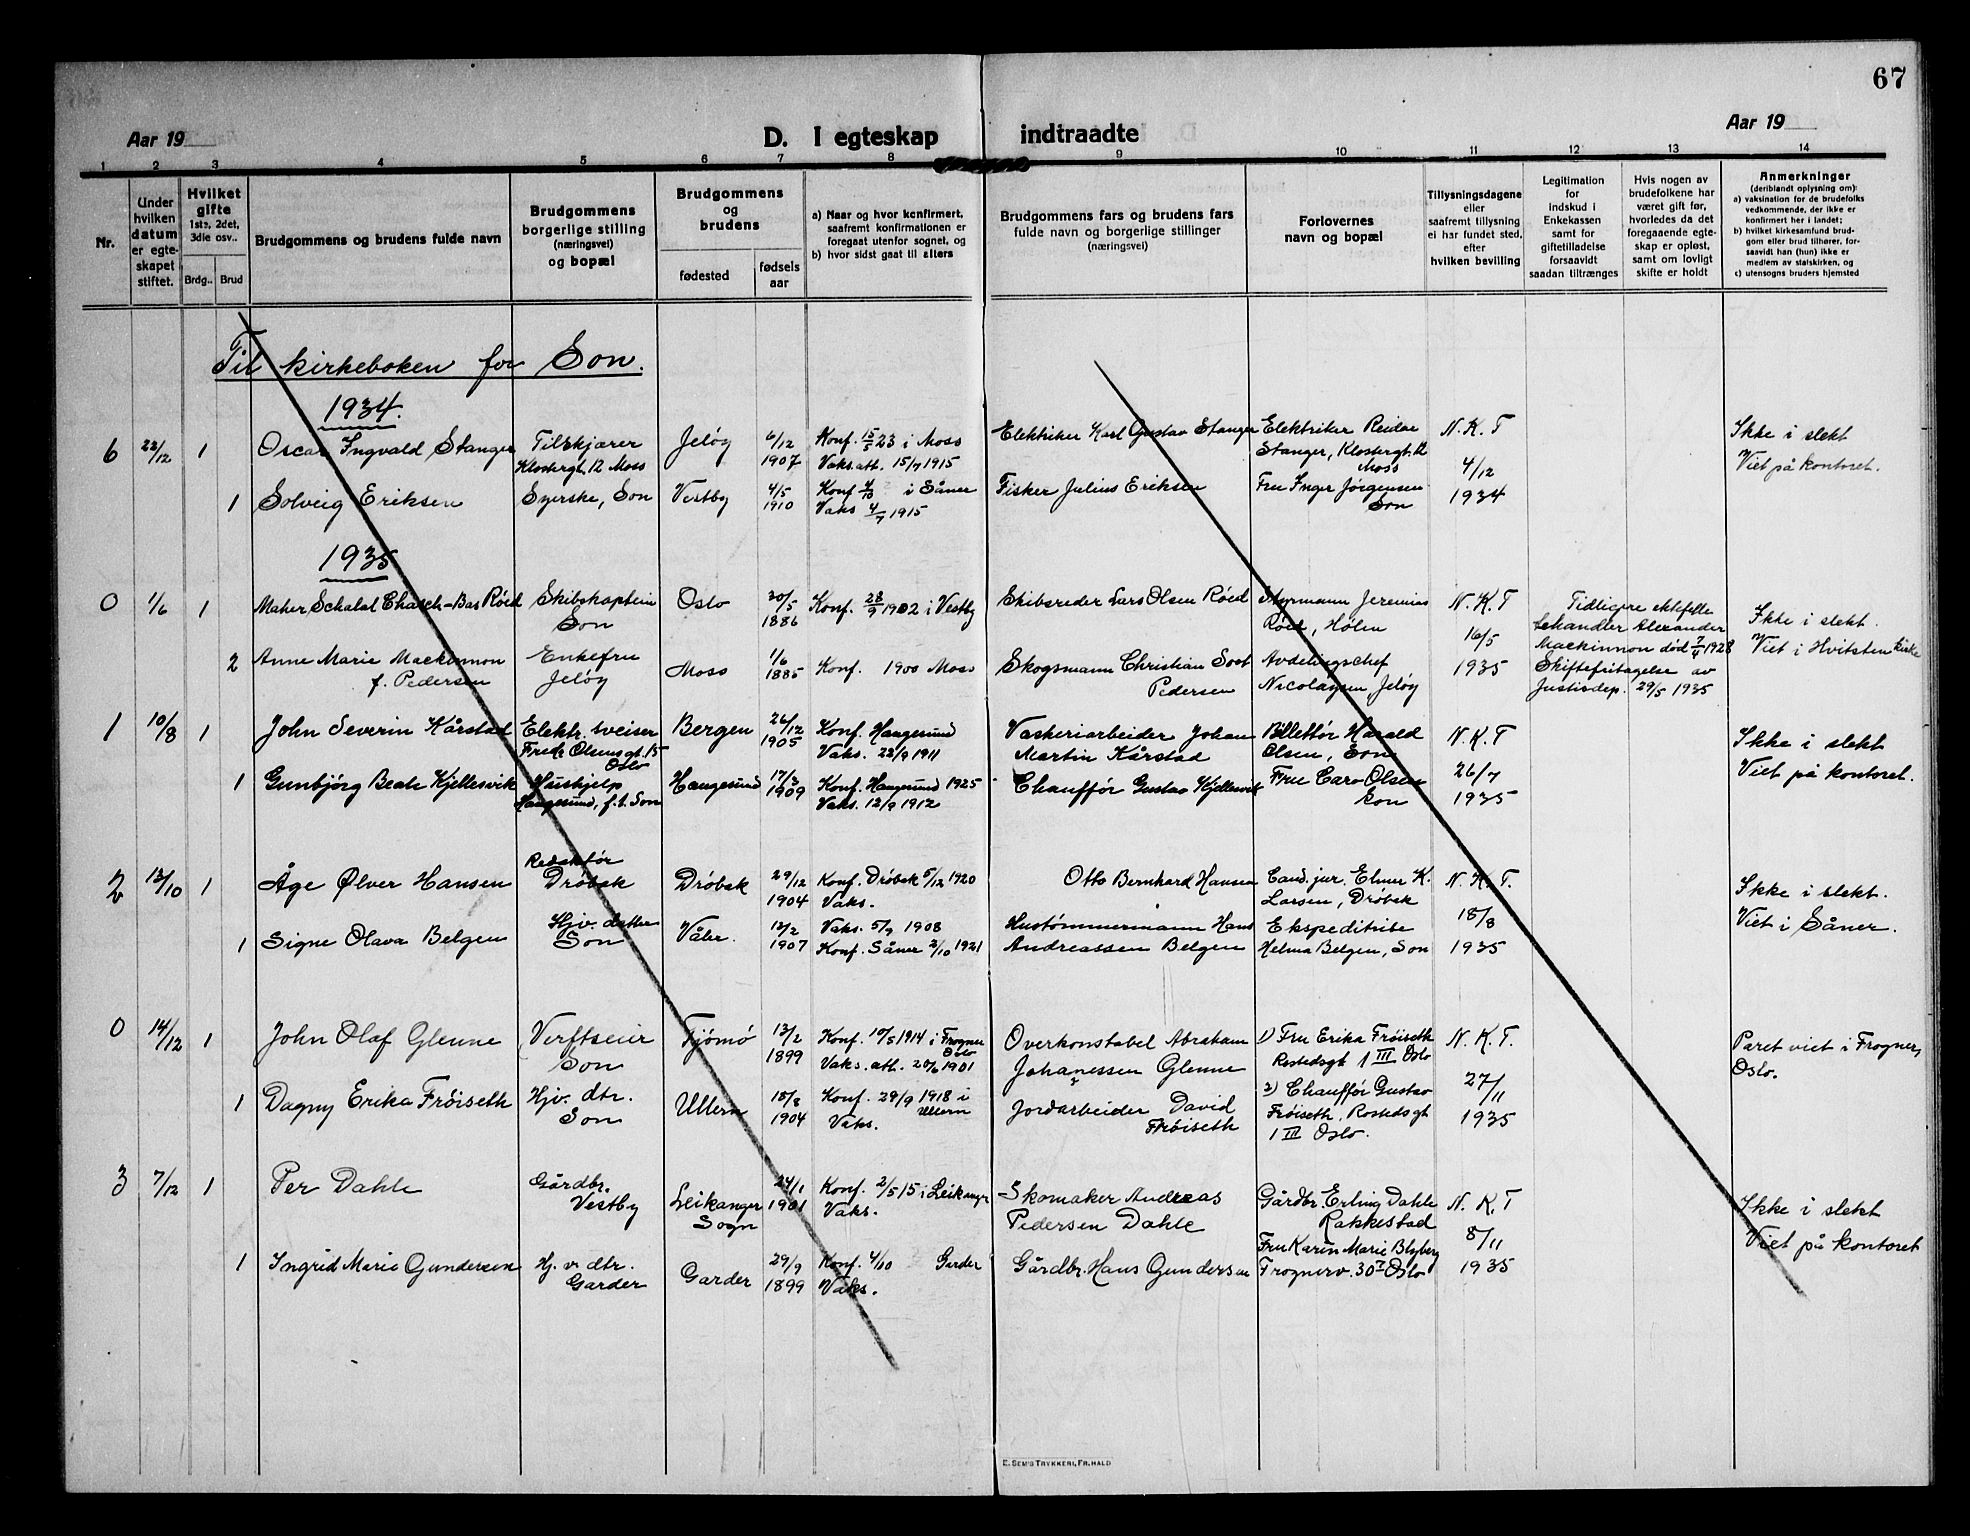 67
Aar 19
D. I egteskap indtraadte
Aar 19
1 2 3 4 5 6 7 8 9 10 11 12 13 14
Nr.
Under hvilken datum er egte-skapet stiftet.
Hvilket gifte 1ste, 2det, 3die osv..
Brdg.. Brud
Brudgommens og brudens fulde navn
Brudgommens borgerlige stilling (næringsvei) og bopæl
Brudgommens og brudens
fødested
fødsels aar
a) Naar og hvor konfirmert, saafremt konfirmationen er foregaat utenfor sognet, og
b) hvor sidst gaat til alters
Brudgommens fars og brudens fars fulde navn og borgerlige stillinger (næringsvei)
Forlovernes navn og bopæl
Tillysningsdagene eller saafremt tillysning ei har fundet sted, efter hvilken bevilling
Legitimation for indskud i Enkekassen samt for giftetilladelse forsaavidt saadan tiltrænges
Hvis nogen av brudefolkene har været gift før, hvorledes da det foregaaende egte-skap er opløst, samt om lovligt skifte er holdt
Anmerkninger
(deriblandt oplysning om):
a) vaksination for de brudefolks vedkommende, der ikke er konfirmert her i landet;
b) hvilket kirkesamfund brud-gom eller brud tilhører, for-saavidt han (hun) ikke er medlem av statskirken, og
c) utensogns bruders hjemsted
Til kirkeboken for Son.
1934.
6 22/12 1 Oscar Ingvald Stanger
Klostergt. 12 Moss
Jeløy
6/12 1907
Konf. 15/5 23 i Moss
Vaks. att. 15/7 1915
Elektriker Karl Gustav Stanger
Elektriker Reidar Stanger, Klostergt. 12 Moss
N.K.T 4/12 1934
Ikke i slekt
Viet på kontoret.
1 Solveig Eriksen
Syerske, Son
Vestby
4/5 1910
Konf. 4/10 i Såner
Vaks 4/7 1915
Fisker Julius Eriksen
Fru Inger Jørgensen Son
1935
0 1/6 1 Maher Schalal Chasch-Bas Røed
Skibskaptein Son
Oslo
30/5 1886
Konf. 28/9 1902 i Vestby
Skibsreder Lars Olsen Røed
Styrmann Jeremias Røed, Hølen
N.K.T 16/5 1935
Tidligere ektefelle
Alexander
Mackinnon død 7/4 1928
Skiftefritagelse av
Justisdep. 29/5 1935
Ikke i slekt.
Viet i Hvitsten kirke
2 Anne Marie Mackinnon f. Pedersen
Enkefru Jeløy
Moss
1/6 1885
Konf. 1900 Moss
Skogsmann Christian Pedersen
Avdelingschef Nicolaysen, Jeløy
1 10/8 1 John Severin Kårstad
Elektr. sveiser
Fredr. Olsensgt. 15 Oslo
Bergen
26/12 1905
Konf. Haugesund
Vaks. 23/9 1911
Vaskeriarbeider Johan Martin Kårstad
Billettør Harald Olsen, Son
N.K.T 26/7 1935
Ikke i slekt
Viet på kontoret.
1 Gunbjørg Beate Kjellesvik
Hushjelp
Haugesund, f.t. Son
Haugesund
17/3 1909
Konf. Haugesund 1925
Vaks. 12/9 1912
Chauffør Gustav Kjellesvik
Fru Caro Olsen Son
2 13/10 1 Åge Ølver Hansen
Redaktør Drøbak
Drøbak
29/12 1904
Konf. Drøbak 5/12 1920
Vaks.
Otto Bernhard Hansen
Cand. jur. Elmer K. Larsen, Drøbak
N.K.T. 18/8 1935
Ikke i slekt.
Viet i Såner.
1 Signe Olava Belgen
Hjv. datter Son
Våler.
12/2 1907
Vaks. 5/9 1908
Konf. Såner 2/10 1921
Hustømmermann Hans Andreassen Belgen
Ekspeditrise Helma Belgen, Son
0 14/12 1 John Olaf Glenne
Verftseier Son
Tjømø
13/2 1899
Konf. 10/5 1914 i Frogner Oslo
Vaks. att. 20/6 1901
Overkonstabel Abraham Johanessen Glenne
1) Fru Erika Frøiseth
Rostedsgt 1 III Oslo
N.K.T. 27/11 1935
Paret viet i Frogner, Oslo.
1 Dagny Erika Frøiseth
Hjv. dtr. Son
Ullern
18/8 1904
Konf. 29/9 1918 i Ullern
Vaks.
Jordarbeider David Frøiseth
2) Chauffør Gustav Frøiseth. Rostedsgt 1 III Oslo.
3 7/12 1 Per Dahle
Gårdbr. Vestby
Leikanger Sogn
24/1 1901
Konf. 2/5 15 i Leikanger
Vaks.
Skomaker Andreas Pedersen Dahle
Gårdbr. Erling Dahle Rakkestad
N.K.T 8/11 1935
Ikke i slekt
Viet på kontoret
1 Ingrid Marie Gundersen
Hj. v. dtr. Garder
Garder
29/9 1899
Konf. 4/10 Garder
Vaks.
Gårdbr. Hans Gundersen
Fru Karin Marie Blyberg
Frognerv. 30 Oslo
E. SEM'S TRYKKERI, FR.HALD